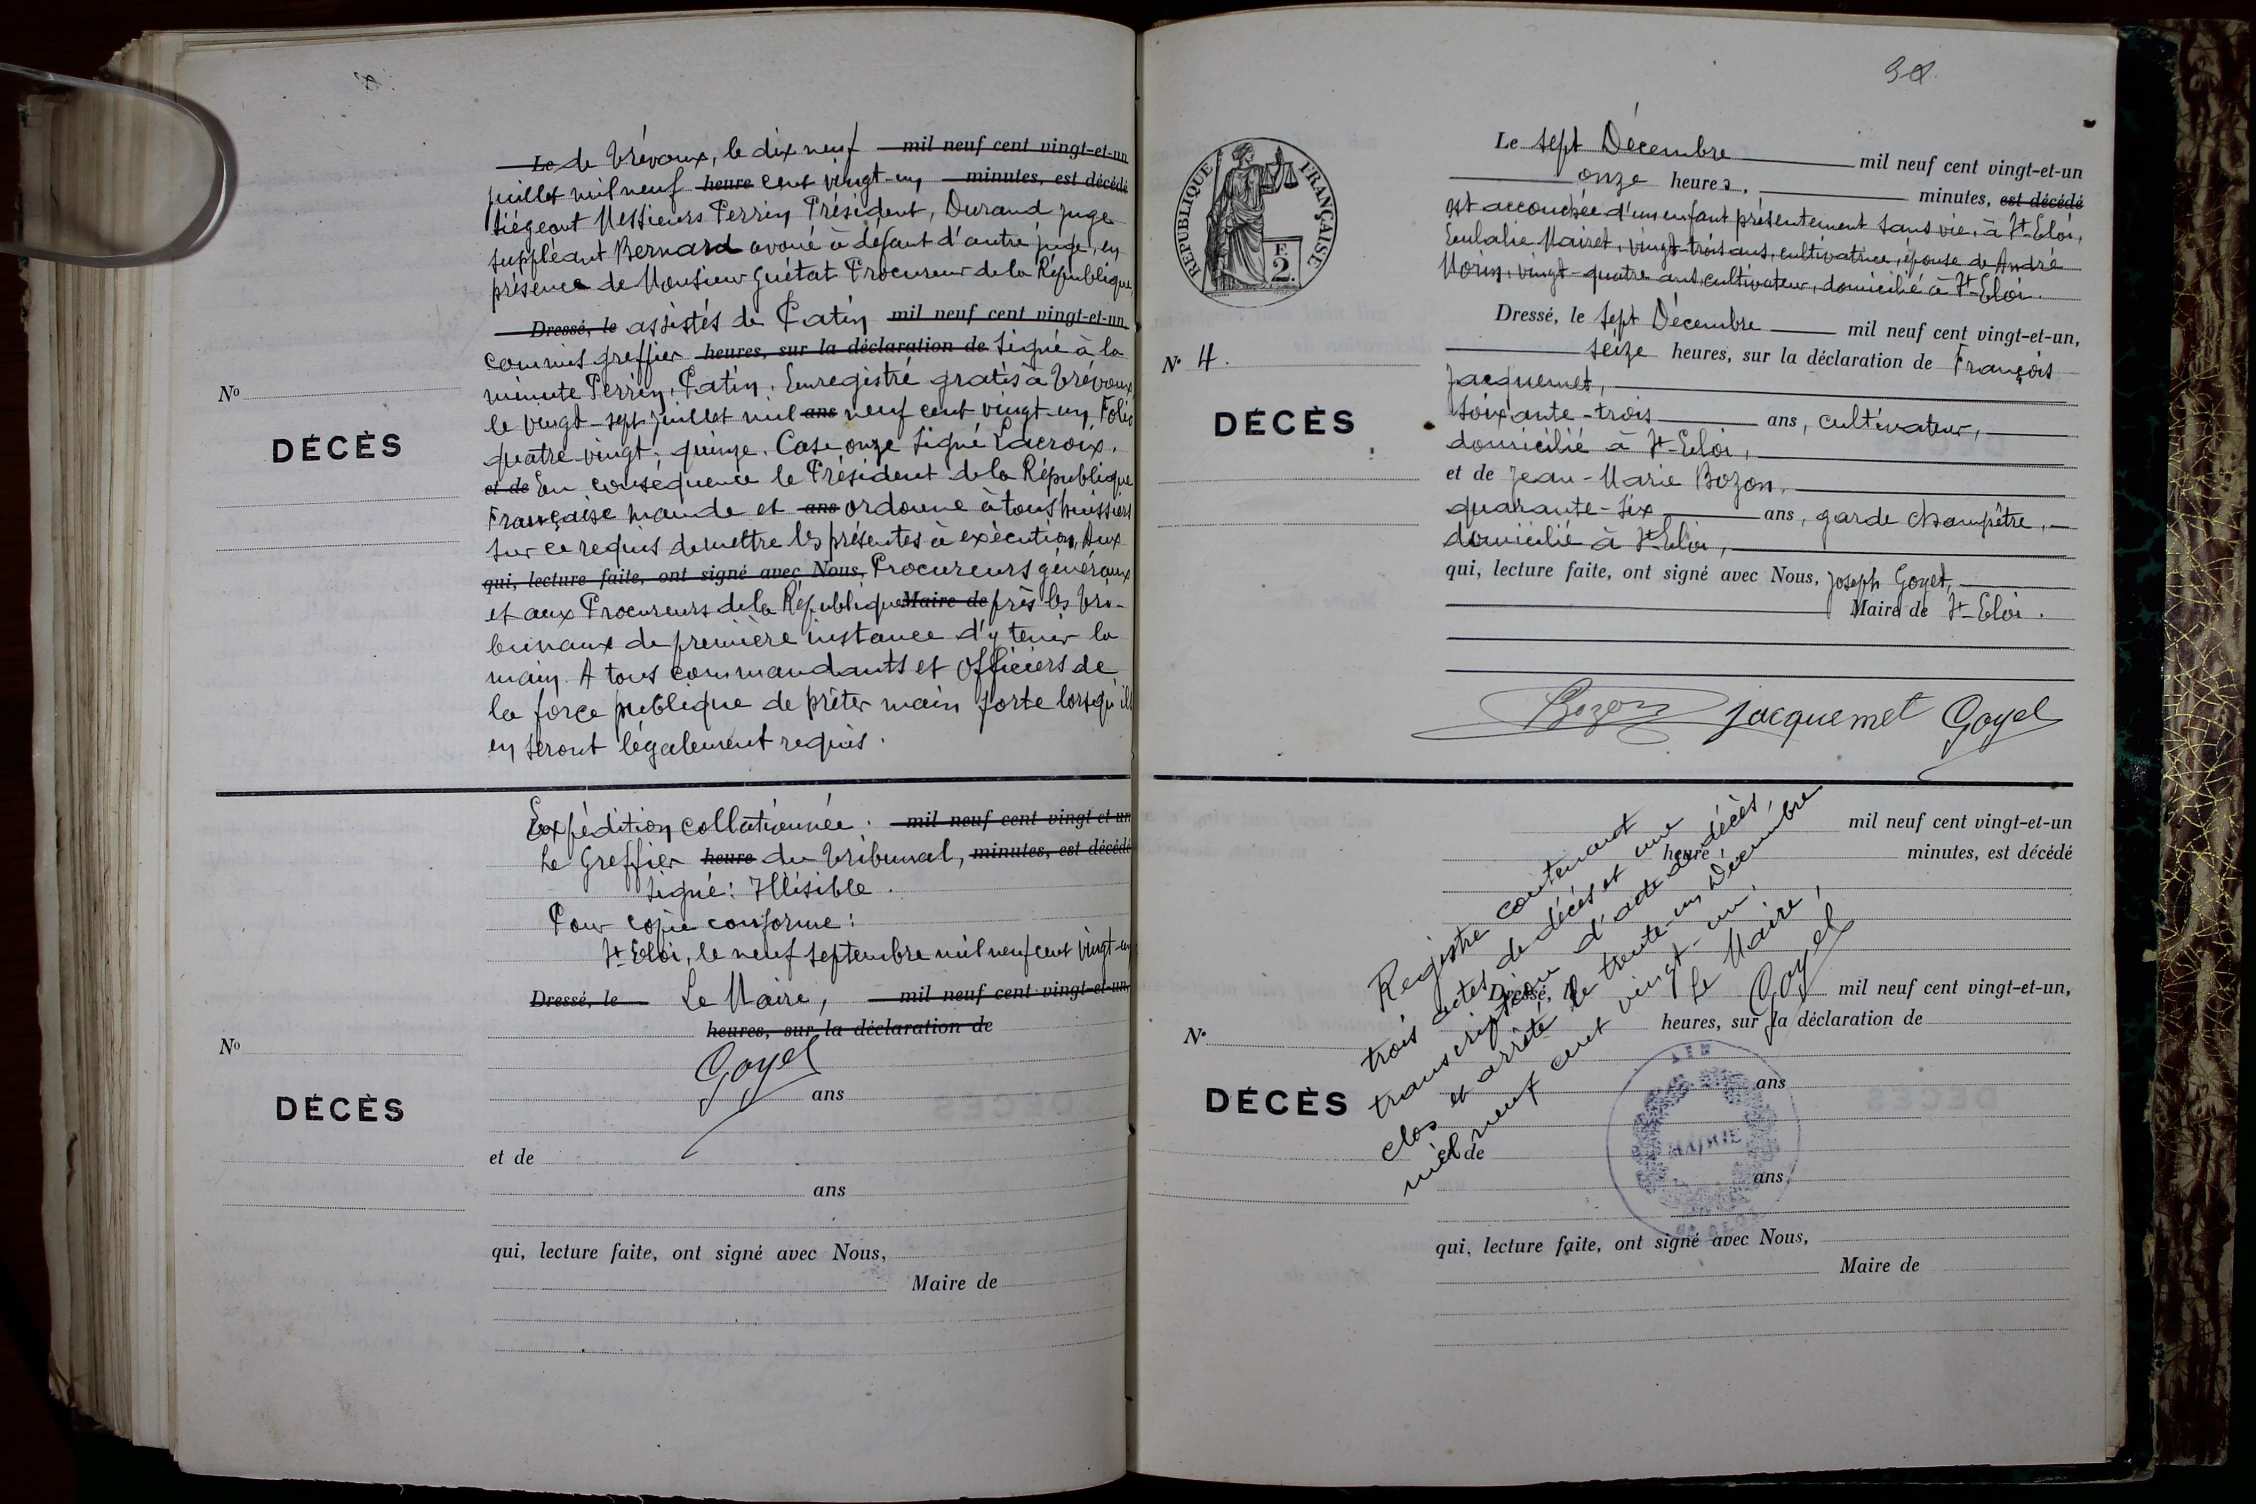 Le de Trévoux, le dix neuf mil neuf cent vingt-et-un
juillet mil neuf heure cent vingt-un minutes, est décédé
siégeant Messieurs Perrin Président, Durand juge
suppléant Bernard avoué à défaut d'autre juge, en
présence de Monsieur Guétat Procureur de la République,
Dressé, le assistés de Patin mil neuf cent vingt-et-un
commis greffier heures, sur la déclaration de Signé à la
minute Perrin, Patin. Enregistré gratis à Trévoux
le vingt-sept juillet mil ans neuf cent vingt-un Folio
quatre-vingt-quinze. Case onze Signé Lacroix.
et de En conséquence le Président de la République
Française mande et ans ordonne à tous huissiers
sur ce requis de mettre les présentes à exécution, Aux
qui, lecture faite, ont signé avec Nous, Procureurs généraux
et aux Procureurs de la République Maire de près les tri-
bunaux de première instance d'y tenir la
main. A tous commandants et officiers de
la force publique de prêter main forte lorsqu'ils
en seront légalement requis.
No
DÉCÈS
Expédition collationnée. mil neuf cent vingt-et-un
Le Greffier heure du Tribunal, minutes, est décédé
Signé: Illisible.
Pour copie conforme:
St-Eloi, le neuf septembre mil neuf cent vingt-un
Dressé, le Le Maire, mil neuf cent vingt-et-un,
heures, sur la déclaration de
Goyet
ans
et de
ans
qui, lecture faite, ont signé avec Nous,
Maire de
No
DÉCÈS
38.
RÉPUBLIQUE FRANÇAISE
F.
2.
N° 4.
DÉCÈS
Le sept Décembre mil neuf cent vingt-et-un
onze heures, minutes, est décédé
est accouchée d'un enfant présentement sans vie, à St-Eloi,
Eulalie Mairet, vingt-trois ans, cultivatrice, épouse de André
Morin, vingt-quatre ans, cultivateur, domicilié à St-Eloi.
Dressé, le sept Décembre mil neuf cent vingt-et-un,
seize heures, sur la déclaration de François
Jacquemet,
soixante-trois ans, cultivateur,
domicilié à St-Eloi,
et de Jean-Marie Bozon,
quarante-six ans, garde champêtre,
domicilié à St-Eloi,
qui, lecture faite, ont signé avec Nous, Joseph Goyet,
Maire de St-Eloi.
Bozon Jacquemet Goyet
mil neuf cent vingt-et-un
heure, minutes, est décédé
Registre contenant
trois actes de décès et une
transcription d'acte de décès,
clos et arrêté le trente-un Décembre
mil neuf cent vingt-un.
Le Maire,
Goyet
Dressé, le mil neuf cent vingt-et-un,
heures, sur la déclaration de
ans
et de
ans
qui, lecture faite, ont signé avec Nous,
Maire de
N°
DÉCÈS
MAIRIE